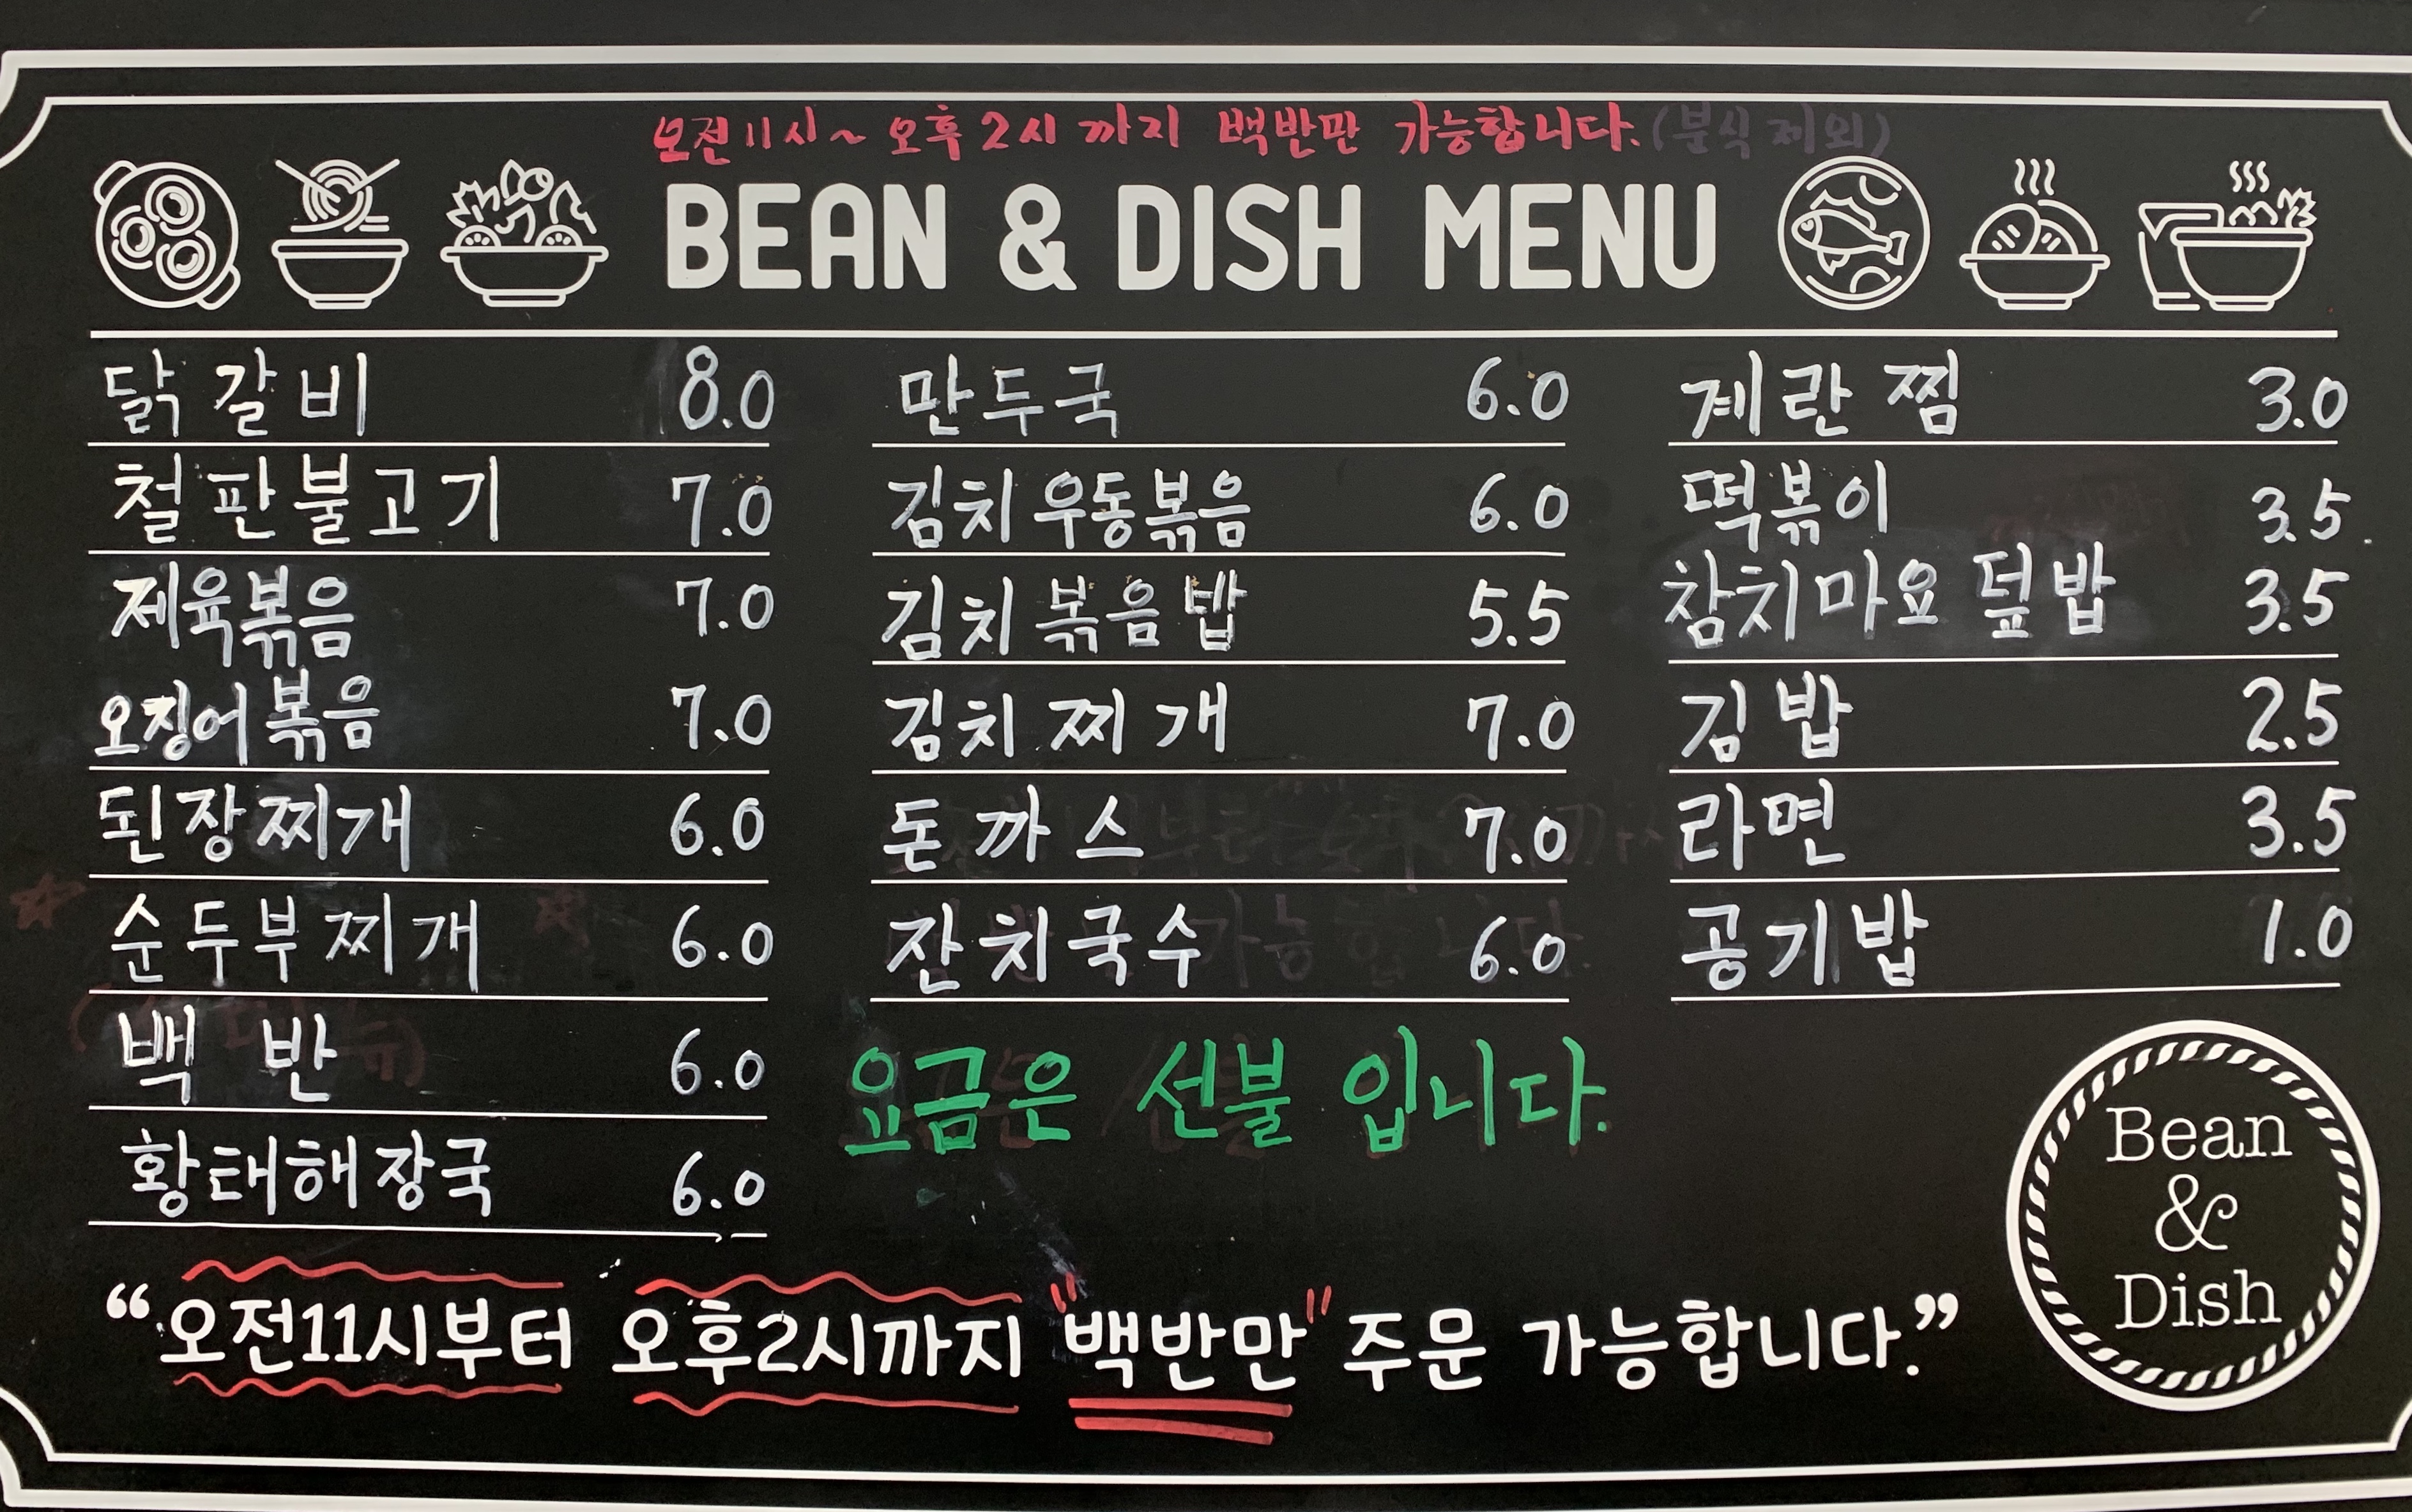 오전11시~오후2시 까지 백반만 가능합니다.(분식 제외)
BEAN & DISH MENU
닭갈비 8.0
철판불고기 7.0
제육볶음 7.0
오징어볶음 7.0
된장찌개 6.0
순두부찌개 6.0
백반 6.0
황태해장국 6.0
만두국 6.0
김치우동볶음 6.0
김치볶음밥 5.5
김치찌개 7.0
돈까스 7.0
잔치국수 6.0
요금은 선불 입니다.
계란찜 3.0
떡볶이 3.5
참치마요 덮밥 3.5
김밥 2.5
라면 3.5
공기밥 1.0
Bean
&
Dish
“오전11시부터 오후2시까지 "백반만" 주문 가능합니다.”